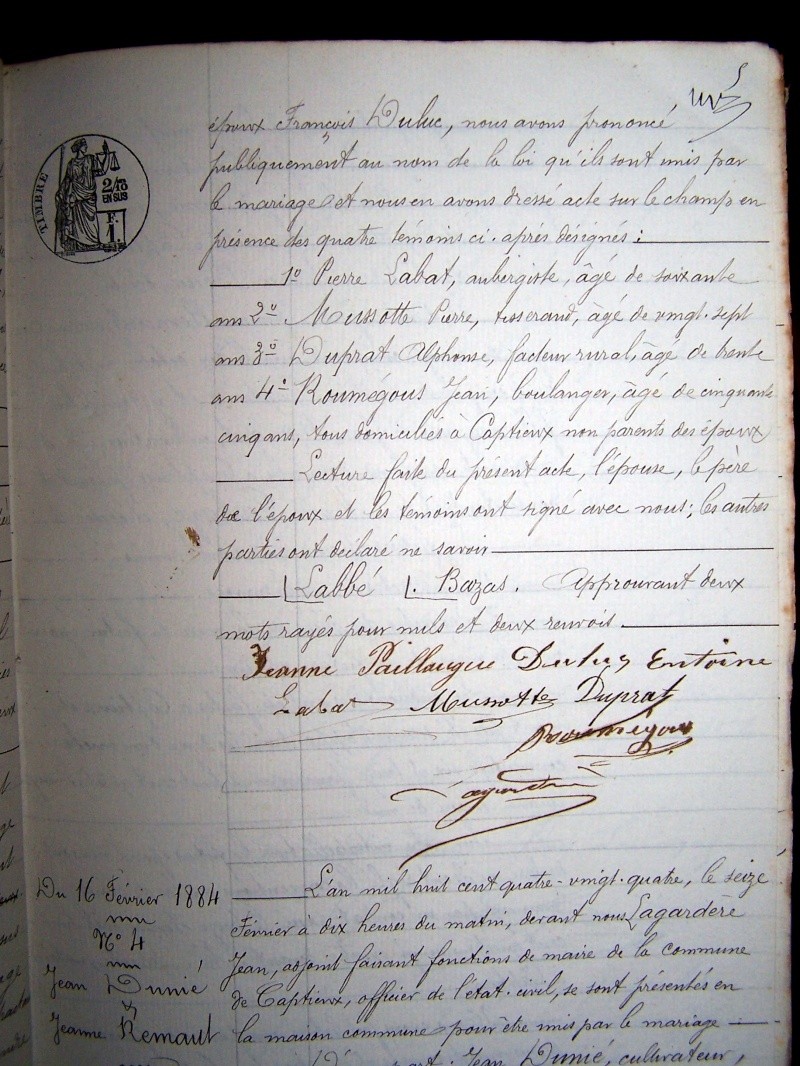 TIMBRE
2/10
EN SUS
F.
1
époux François Duluc, nous avons prononcé
publiquement au nom de la loi qu'ils sont unis par
le mariage et nous en avons dressé acte sur le champ en
présence des quatre témoins ci-après désignés :
1º Pierre Labat, aubergiste, âgé de soixante
ans 2º Mussotte Pierre, tisserand, âgé de vingt-sept
ans 3º Duprat Alphonse, facteur rural, âgé de trente
ans 4º Roumégous Jean, boulanger, âgé de cinquante
cinq ans, tous domiciliés à Captieux non parents des époux
Lecture faite du présent acte, l'épouse, le père
de l'époux et les témoins ont signé avec nous ; les autres
parties ont déclaré ne savoir
Labbé L. Bazas. Approuvant deux
mots rayés pour nuls et deux renvois.
Jeanne Paillaugue Duluc Entoine
Labat Mussotte Duprat
Roumégous
Lagardere
Du 16 Février 1884
Nº 4
Jean Dunié
&
Jeanne Remaut
L'an mil huit cent quatre-vingt-quatre, le seize
Février à dix heures du matin, devant nous Lagardere
Jean, adjoint faisant fonctions de maire de la commune
de Captieux, officier de l'état-civil, se sont présentés en
la maison commune pour être unis par le mariage
D'une part, Jean Dunié, cultivateur,